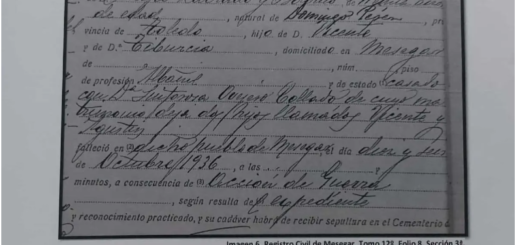 de edad, natural de Domingo Pérez, pro
vincia de Toledo, hijo de D. Vicente
y de D.ª Tiburcia, domiciliado en Mesegar
de, núm., piso
de profesión Albañil y de estado casado
con D.ª Sinforosa Collado de cuyo ma
trimonio deja dos hijos llamados Vicente y
Agustín
falleció en dicho pueblo de Mesegar, el día diez y
de Octubre 1936, a las y
minutos, a consecuencia de Acción de Guerra
, según resulta del expediente
y reconocimiento practicado, y su cadáver habrá de recibir sepultura en el Cementerio d
Imagen 6. Registro Civil de Mesegar. Tomo 12º, Folio 8, Sección 3ª